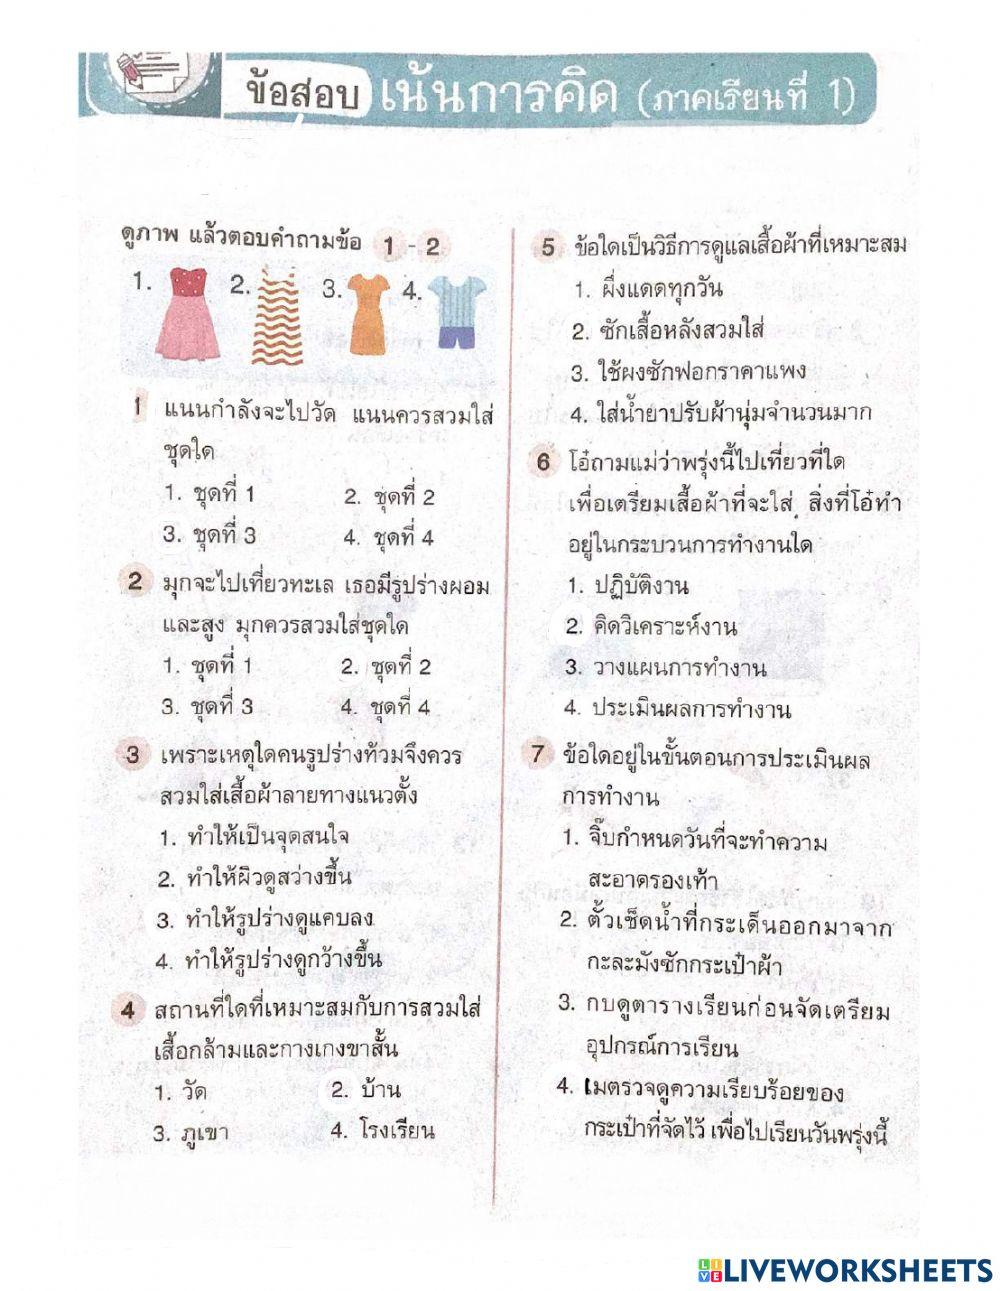 ข้อสอบ เน้นการคิด (ภาคเรียนที่ 1)
ดูภาพ แล้วตอบคำถามข้อ 1 - 2
1. 2. 3. 4.
1 แนนกำลังจะไปวัด แนนควรสวมใส่
ชุดใด
1. ชุดที่ 1 2. ชุดที่ 2
3. ชุดที่ 3 4. ชุดที่ 4
2 มุกจะไปเที่ยวทะเล เธอมีรูปร่างผอม
และสูง มุกควรสวมใส่ชุดใด
1. ชุดที่ 1 2. ชุดที่ 2
3. ชุดที่ 3 4. ชุดที่ 4
3 เพราะเหตุใดคนรูปร่างท้วมจึงควร
สวมใส่เสื้อผ้าลายทางแนวตั้ง
1. ทำให้เป็นจุดสนใจ
2. ทำให้ผิวดูสว่างขึ้น
3. ทำให้รูปร่างดูแคบลง
4. ทำให้รูปร่างดูกว้างขึ้น
4 สถานที่ใดที่เหมาะสมกับการสวมใส่
เสื้อกล้ามและกางเกงขาสั้น
1. วัด 2. บ้าน
3. ภูเขา 4. โรงเรียน
5 ข้อใดเป็นวิธีการดูแลเสื้อผ้าที่เหมาะสม
1. ผึ่งแดดทุกวัน
2. ซักเสื้อหลังสวมใส่
3. ใช้ผงซักฟอกราคาแพง
4. ใส่น้ำยาปรับผ้านุ่มจำนวนมาก
6 โอ๋ถามแม่ว่าพรุ่งนี้ไปเที่ยวที่ใด
เพื่อเตรียมเสื้อผ้าที่จะใส่ สิ่งที่โอ๋ทำ
อยู่ในกระบวนการทำงานใด
1. ปฏิบัติงาน
2. คิดวิเคราะห์งาน
3. วางแผนการทำงาน
4. ประเมินผลการทำงาน
7 ข้อใดอยู่ในขั้นตอนการประเมินผล
การทำงาน
1. จิ๊บกำหนดวันที่จะทำความ
สะอาดรองเท้า
2. ตั้วเช็ดน้ำที่กระเด็นออกมาจาก
กะละมังซักกระเป๋าผ้า
3. กบดูตารางเรียนก่อนจัดเตรียม
อุปกรณ์การเรียน
4. เมตรวจดูความเรียบร้อยของ
กระเป๋าที่จัดไว้ เพื่อไปเรียนวันพรุ่งนี้
LIVEWORKSHEETS